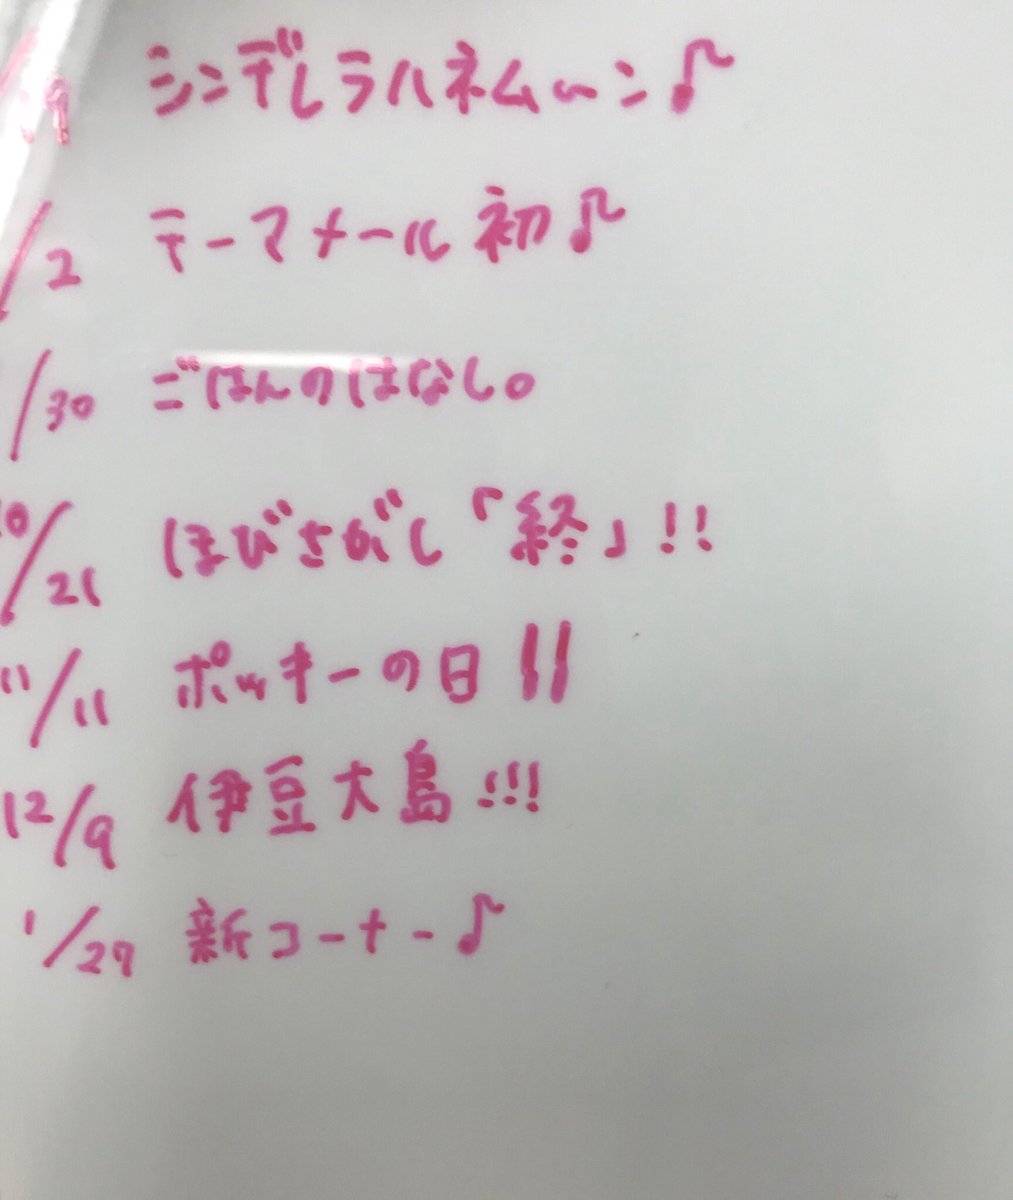 9 シンデレラハネムーン♪
/2 テーマメール初♪
/30 ごはんのはなし。
10/21 ほびさがし「終」!!
11/11 ポッキーの日!!
12/9 伊豆大島!!!
1/27 新コーナー♪